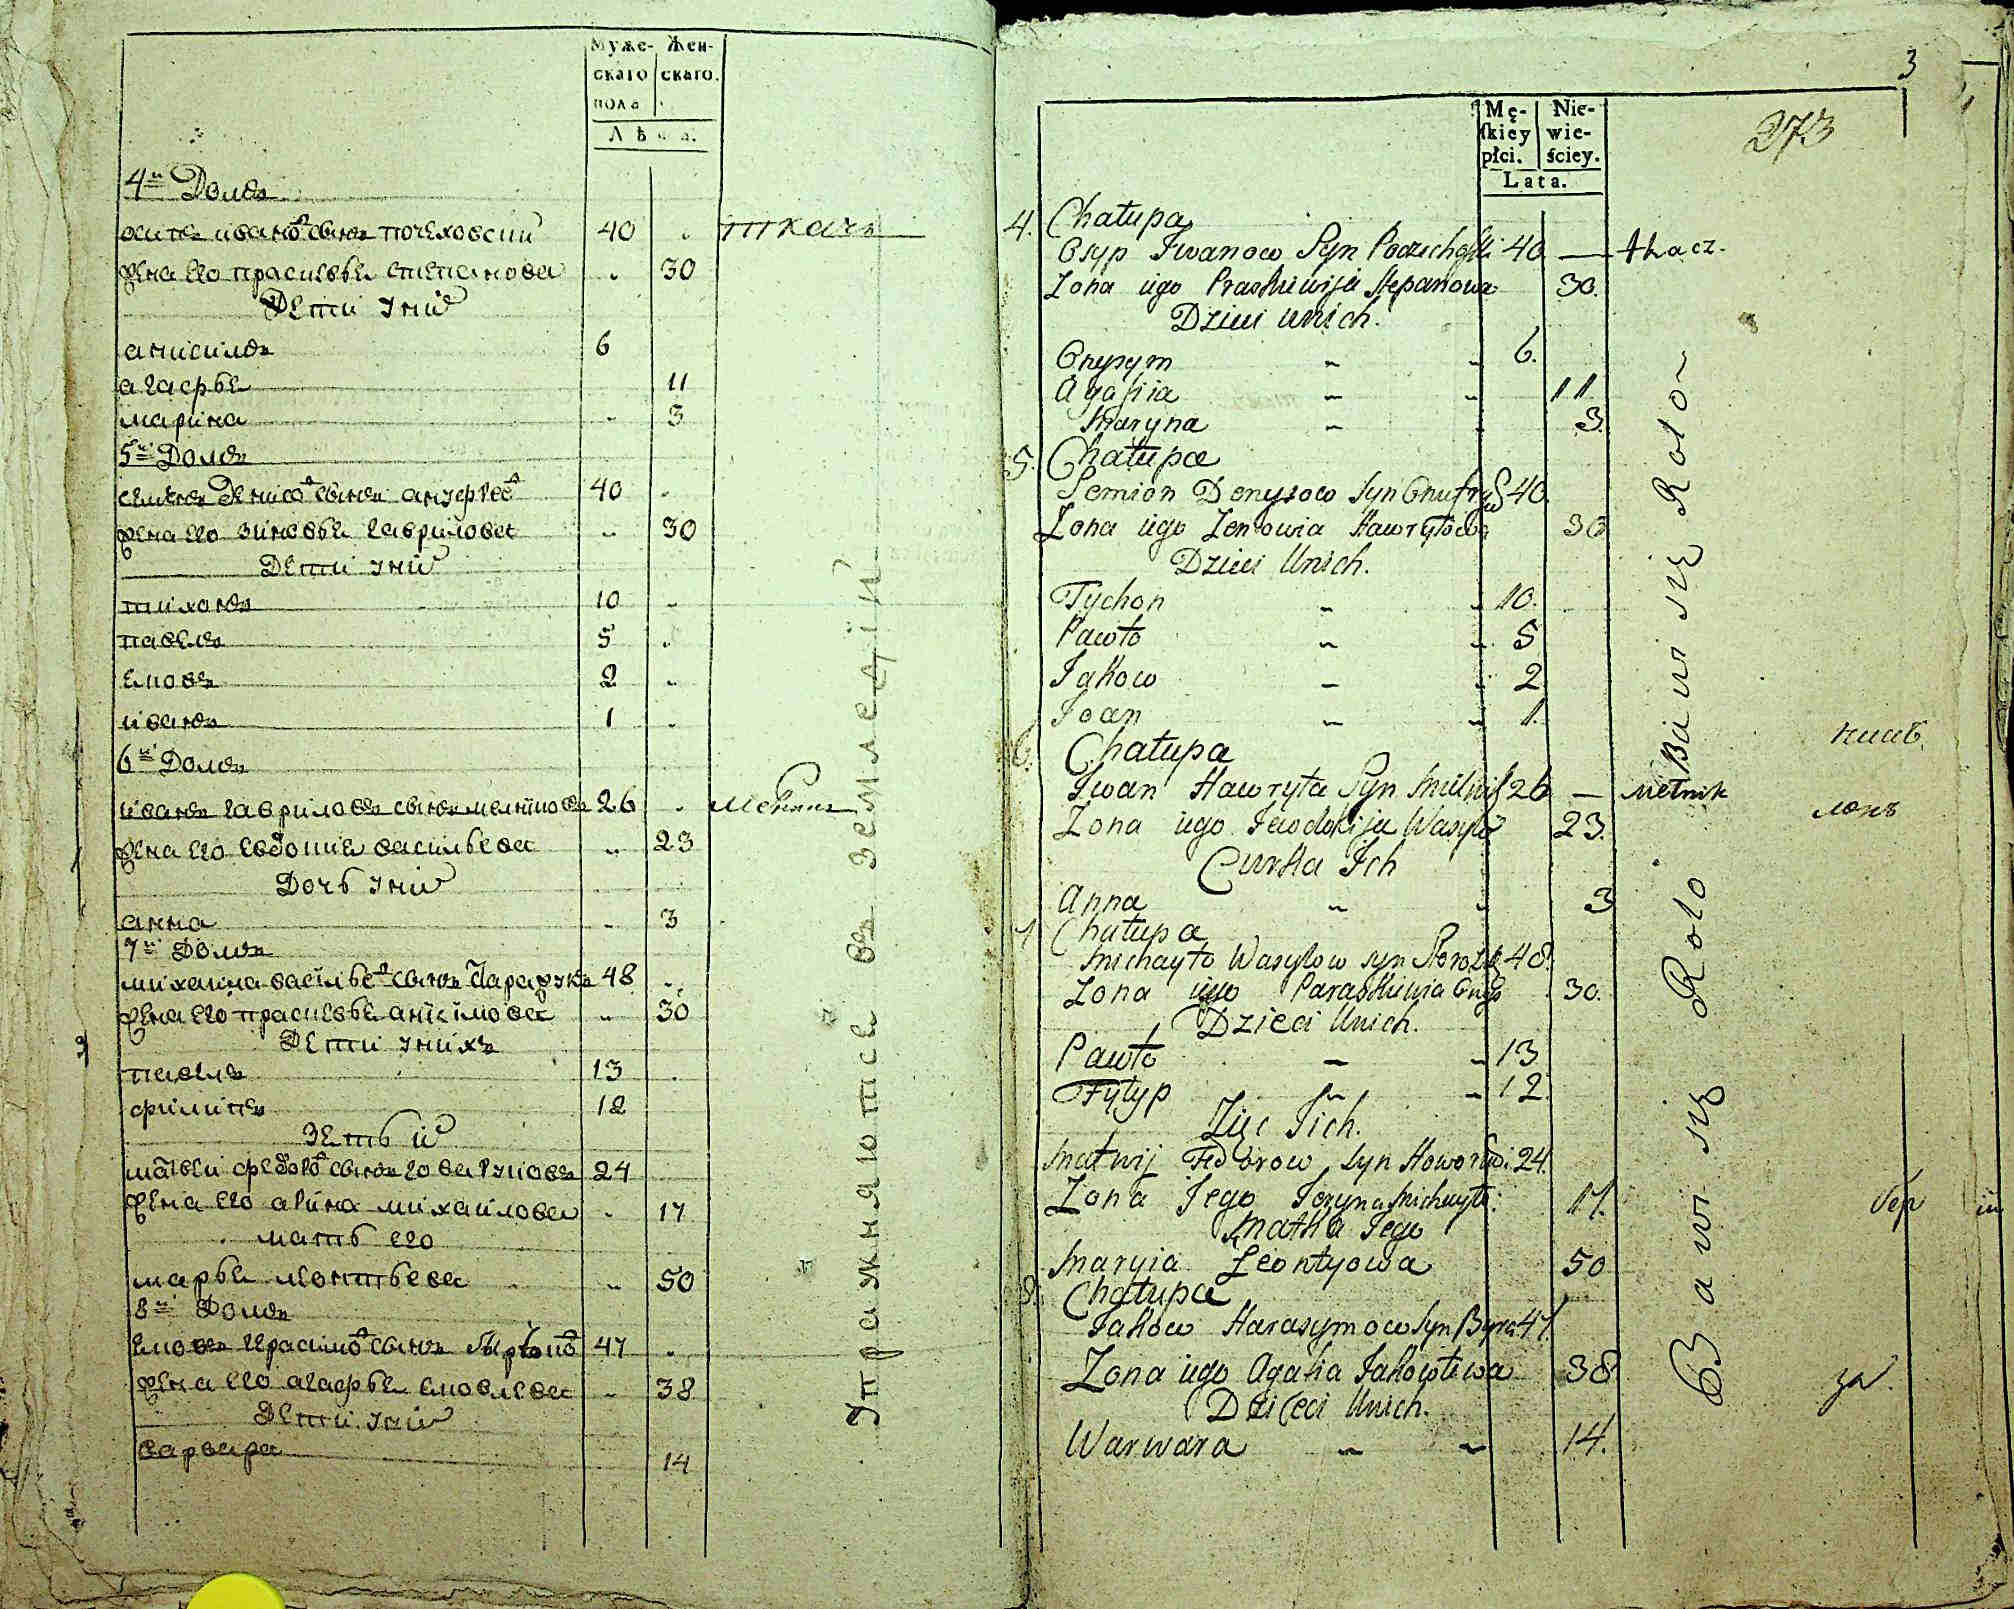 Муже-
скаго
пола
Жен-
скаго.
Лѣта.
4й Домъ
осипъ ивановъ сынъ почеховский 40 ткачь
жена его прасковья степанова 30
Дети у них
анисимъ 6
агафья 11
марина 3
5й Домъ
семенъ денисовъ сынъ 40
жена его зиновья гаврилова 30
Дети у них
тихонъ 10
павелъ 5
яковъ 2
иванъ 1
6й Домъ
иванъ гавриловъ сынъ 26
жена его евдокия васильева 23
Дочь у них
анна 3
7й Домъ
михаила васильевъ сынъ 48
жена его прасковья 30
Дети у нихъ
павелъ 13
филипъ 12
зеть и
матвей федоровъ сынъ 24
жена его михайлова 17
мать его
марья леонтьева 50
8й Домъ
яковъ герасимовъ сынъ 47
жена его агафья яковлева 38
Дети у них
варвара 14
Упражняютсе въ земледѣлii
3
273
Mę-
skiey
płci.
Nie-
wie-
ściey.
Lata.
4. Chałupa
Osyp Iwanow Syn 40 — tkacz.
Zona iego Praskiewija Stepanowa 30.
Dzieci unich.
Onysym 6.
Agafiia 11
Maryna 3.
5. Chałupa
Semion Denysow Syn 40.
Zona iego Zenowia Hawryłowa 30
Dzieci Unich.
Tychon 10.
Pawło 5
Jakow 2
Joan 1.
6. Chałupa
Iwan Hawryła Syn 26 — mełnik
Zona iego Jewdokija Wasyl 23.
Curka Ich
Anna 3
7 Chałupa
Michayło Wasylow syn 48.
Zona iego Paraskiewia 30.
Dzieci Unich.
Pawło 13
Fylyp 12.
Zięć Jich.
Matwij Fedorow Syn 24.
Zona Jego Michayło: 17.
Matka Jego
Maryia Leontyowa 50
8. Chałupa
Jakow Harasymow Syn 47.
Zona iego Agafia Jakowlewa 38
Dzieci Unich.
Warwara 14.
Bawi się Rolo
Bawi się Rolo